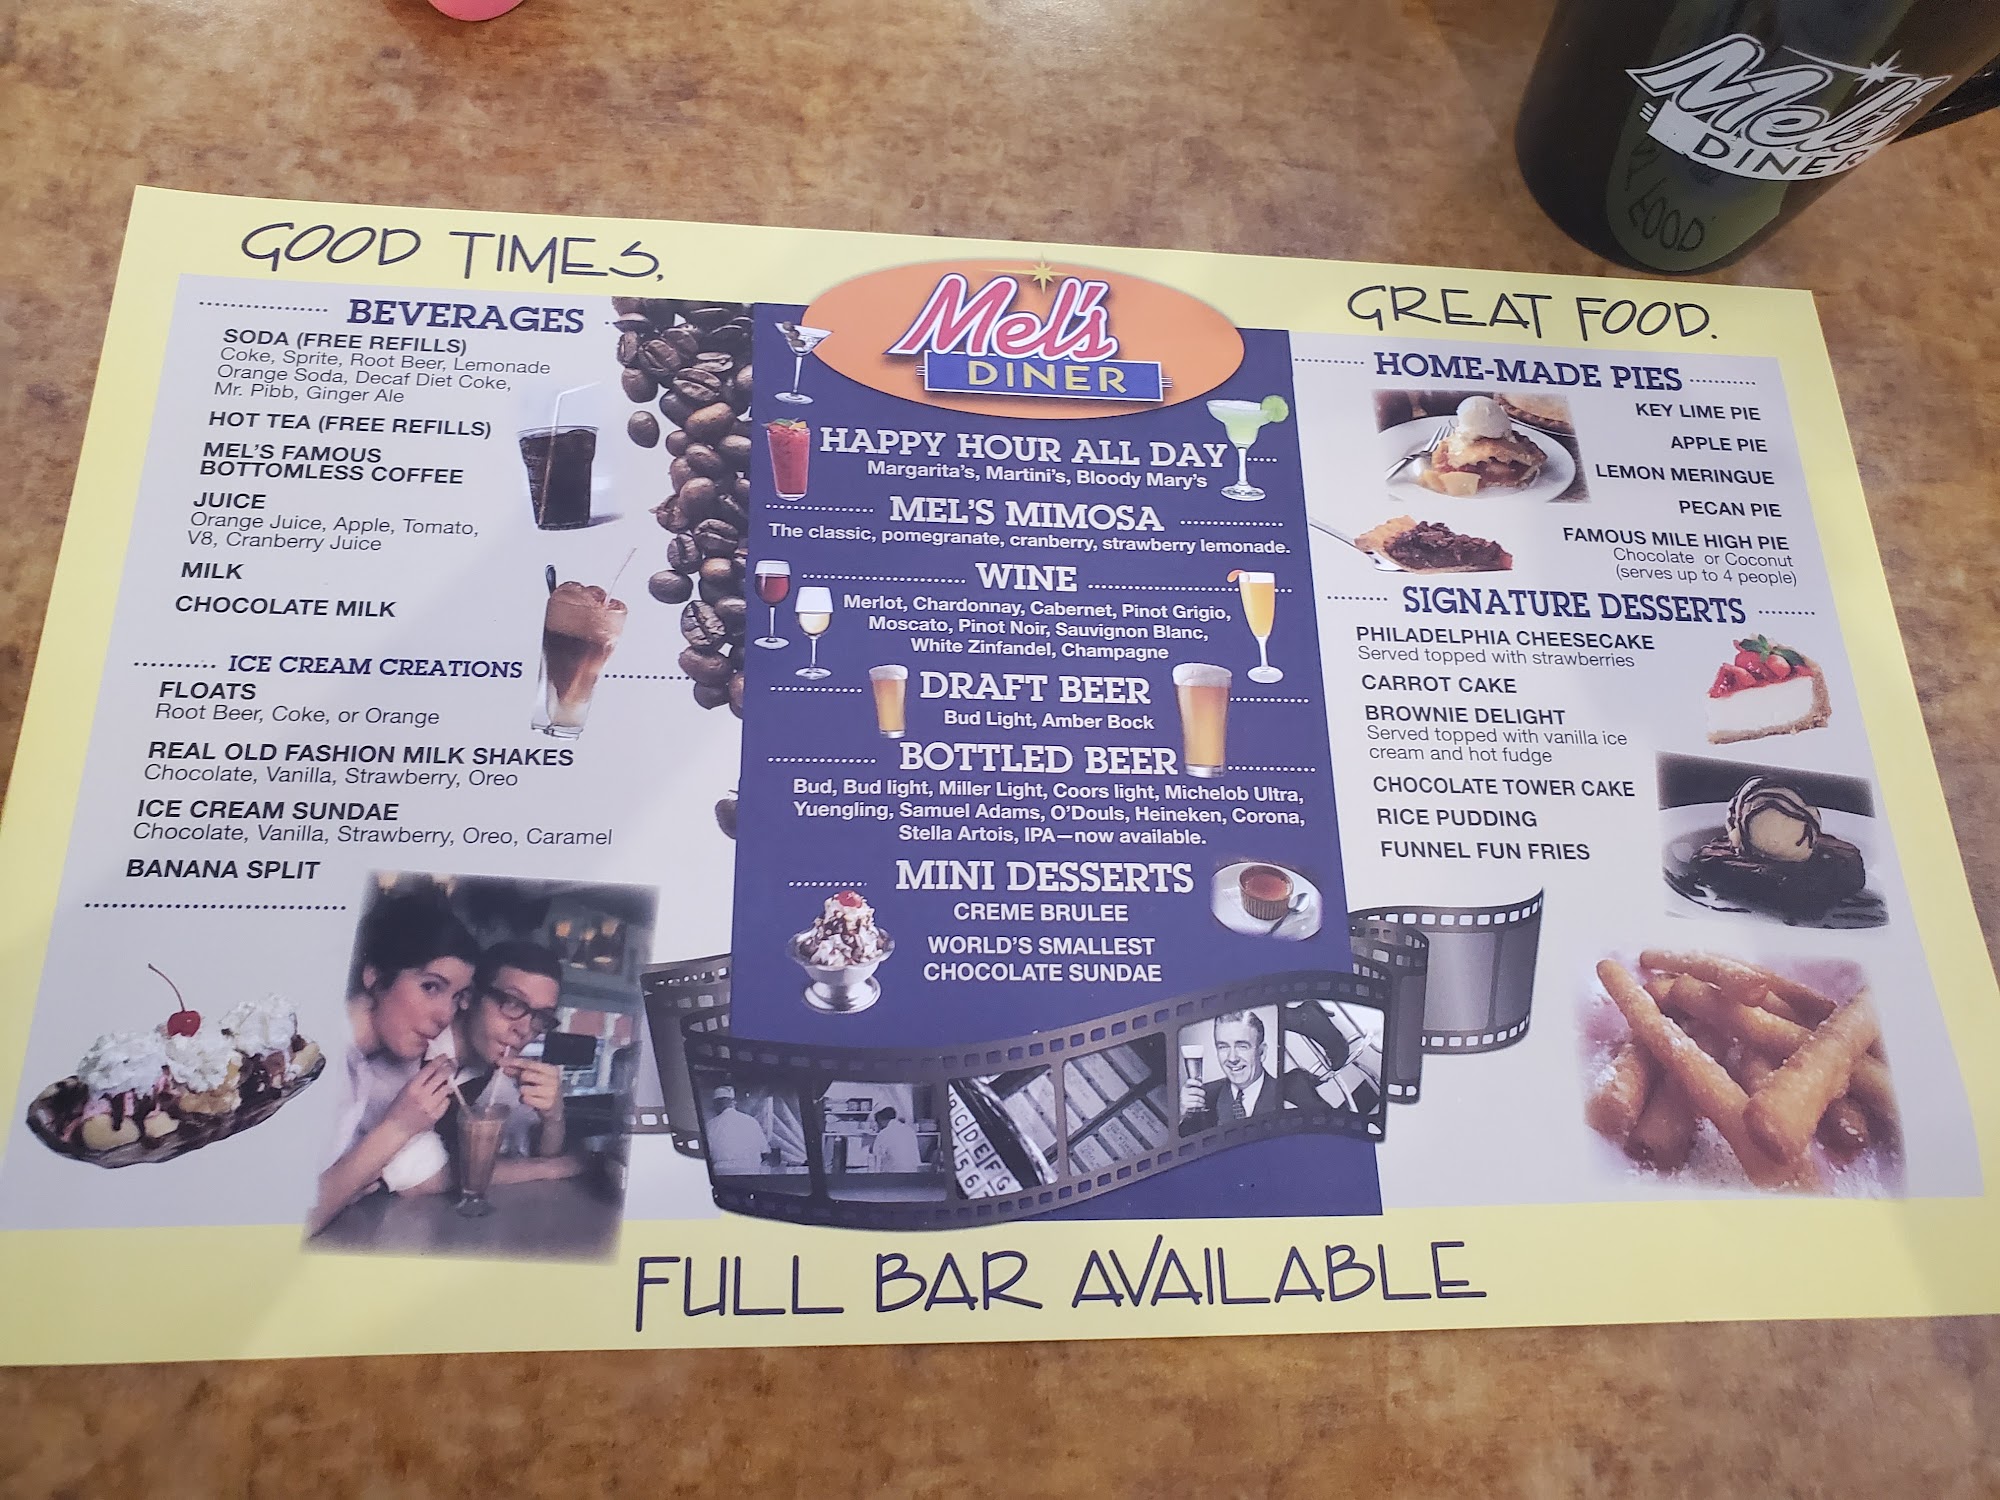 GOOD TIMES,
BEVERAGES
SODA (FREE REFILLS)
Coke, Sprite, Root Beer, Lemonade
Orange Soda, Decaf Diet Coke,
Mr. Pibb, Ginger Ale
HOT TEA (FREE REFILLS)
MEL'S FAMOUS
BOTTOMLESS COFFEE
JUICE
Orange Juice, Apple, Tomato,
V8, Cranberry Juice
MILK
CHOCOLATE MILK
ICE CREAM CREATIONS
FLOATS
Root Beer, Coke, or Orange
REAL OLD FASHION MILK SHAKES
Chocolate, Vanilla, Strawberry, Oreo
ICE CREAM SUNDAE
Chocolate, Vanilla, Strawberry, Oreo, Caramel
BANANA SPLIT
Mel's
DINER
HAPPY HOUR ALL DAY
Margarita's, Martini's, Bloody Mary's
MEL'S MIMOSA
The classic, pomegranate, cranberry, strawberry lemonade.
WINE
Merlot, Chardonnay, Cabernet, Pinot Grigio,
Moscato, Pinot Noir, Sauvignon Blanc,
White Zinfandel, Champagne
DRAFT BEER
Bud Light, Amber Bock
BOTTLED BEER
Bud, Bud light, Miller Light, Coors light, Michelob Ultra,
Yuengling, Samuel Adams, O'Douls, Heineken, Corona,
Stella Artois, IPA—now available.
MINI DESSERTS
CREME BRULEE
WORLD'S SMALLEST
CHOCOLATE SUNDAE
GREAT FOOD.
HOME-MADE PIES
KEY LIME PIE
APPLE PIE
LEMON MERINGUE
PECAN PIE
FAMOUS MILE HIGH PIE
Chocolate or Coconut
(serves up to 4 people)
SIGNATURE DESSERTS
PHILADELPHIA CHEESECAKE
Served topped with strawberries
CARROT CAKE
BROWNIE DELIGHT
Served topped with vanilla ice
cream and hot fudge
CHOCOLATE TOWER CAKE
RICE PUDDING
FUNNEL FUN FRIES
FULL BAR AVAILABLE
Mel's
DINER
FOOD